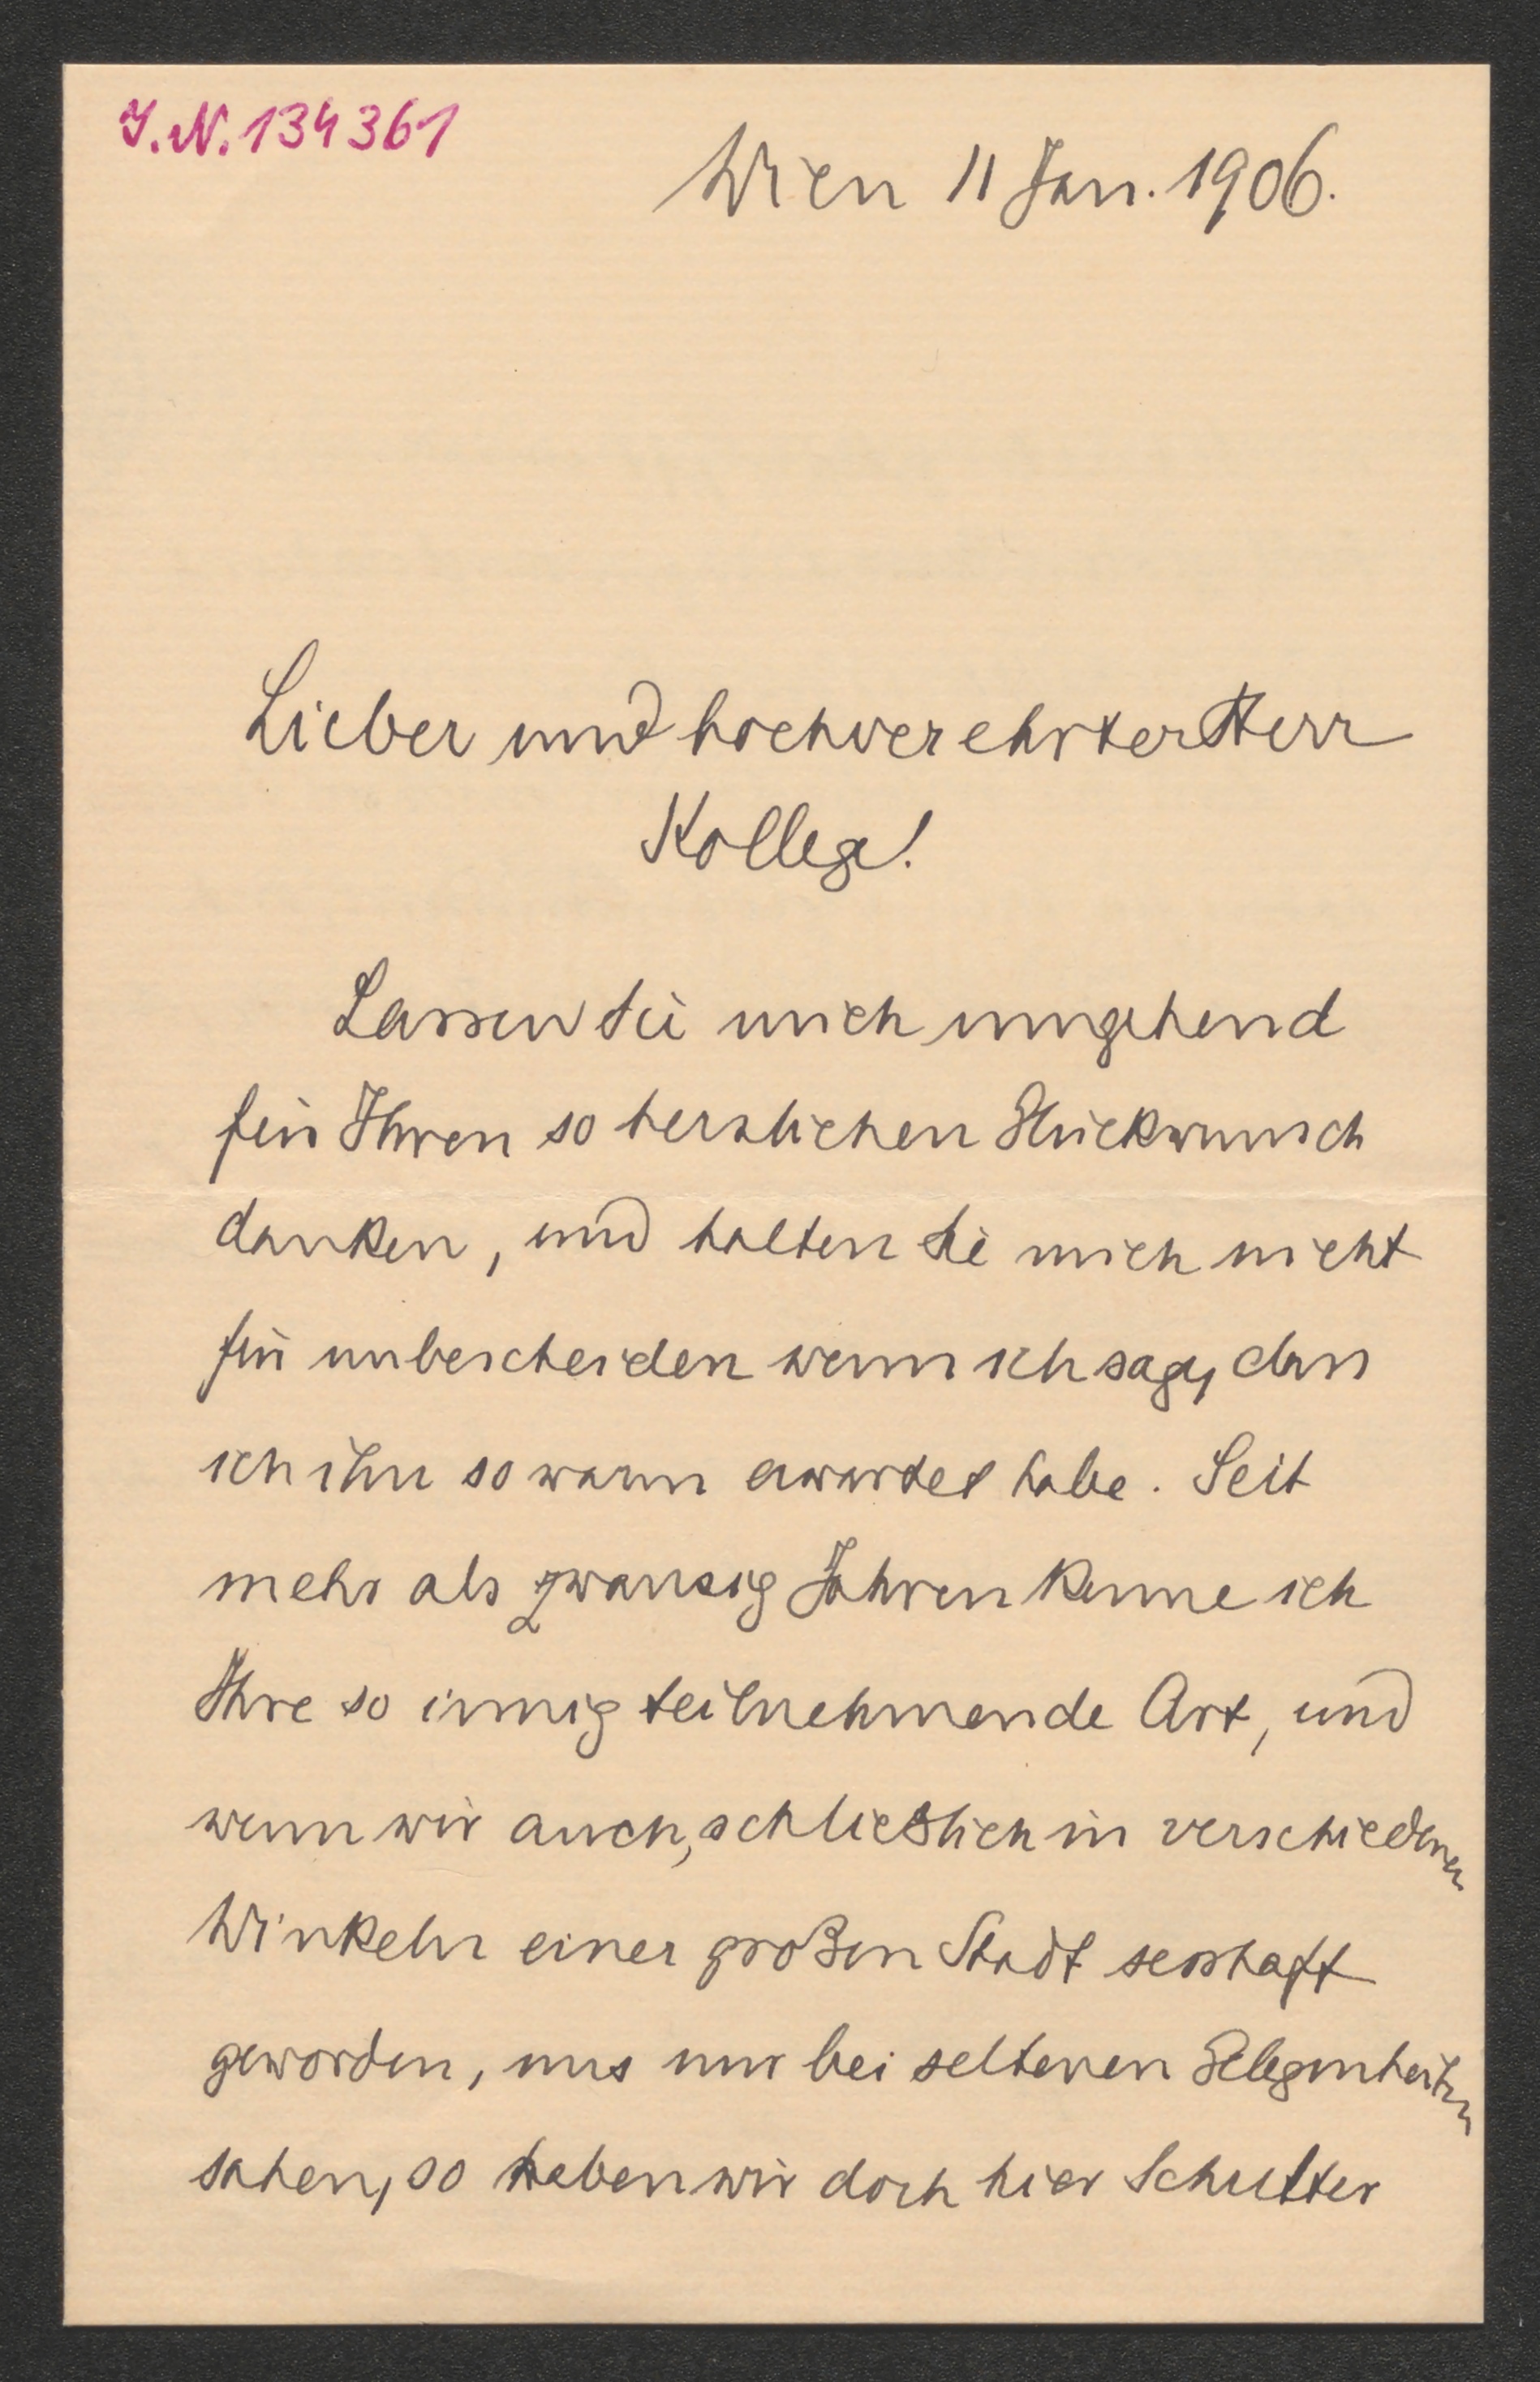 J.N. 134361
Wien 11 Jan. 1906.
Lieber und hochverehrter Herr
Kollege!
Lassen Sie mich umgehend
für Ihren so herzlichen Glückwunsch
danken, und halten Sie mich nicht
für unbescheiden wenn ich sage, dass
ich ihn so warm erwartet habe. Seit
mehr als zwanzig Jahren kenne ich
Ihre so innig teilnehmende Art, und
wenn wir auch, schließlich in verschiedenen
Winkeln einer großen Stadt sesshaft
geworden, uns nur bei seltenen Gelegenheiten
sahen, so haben wir doch hier Schulter